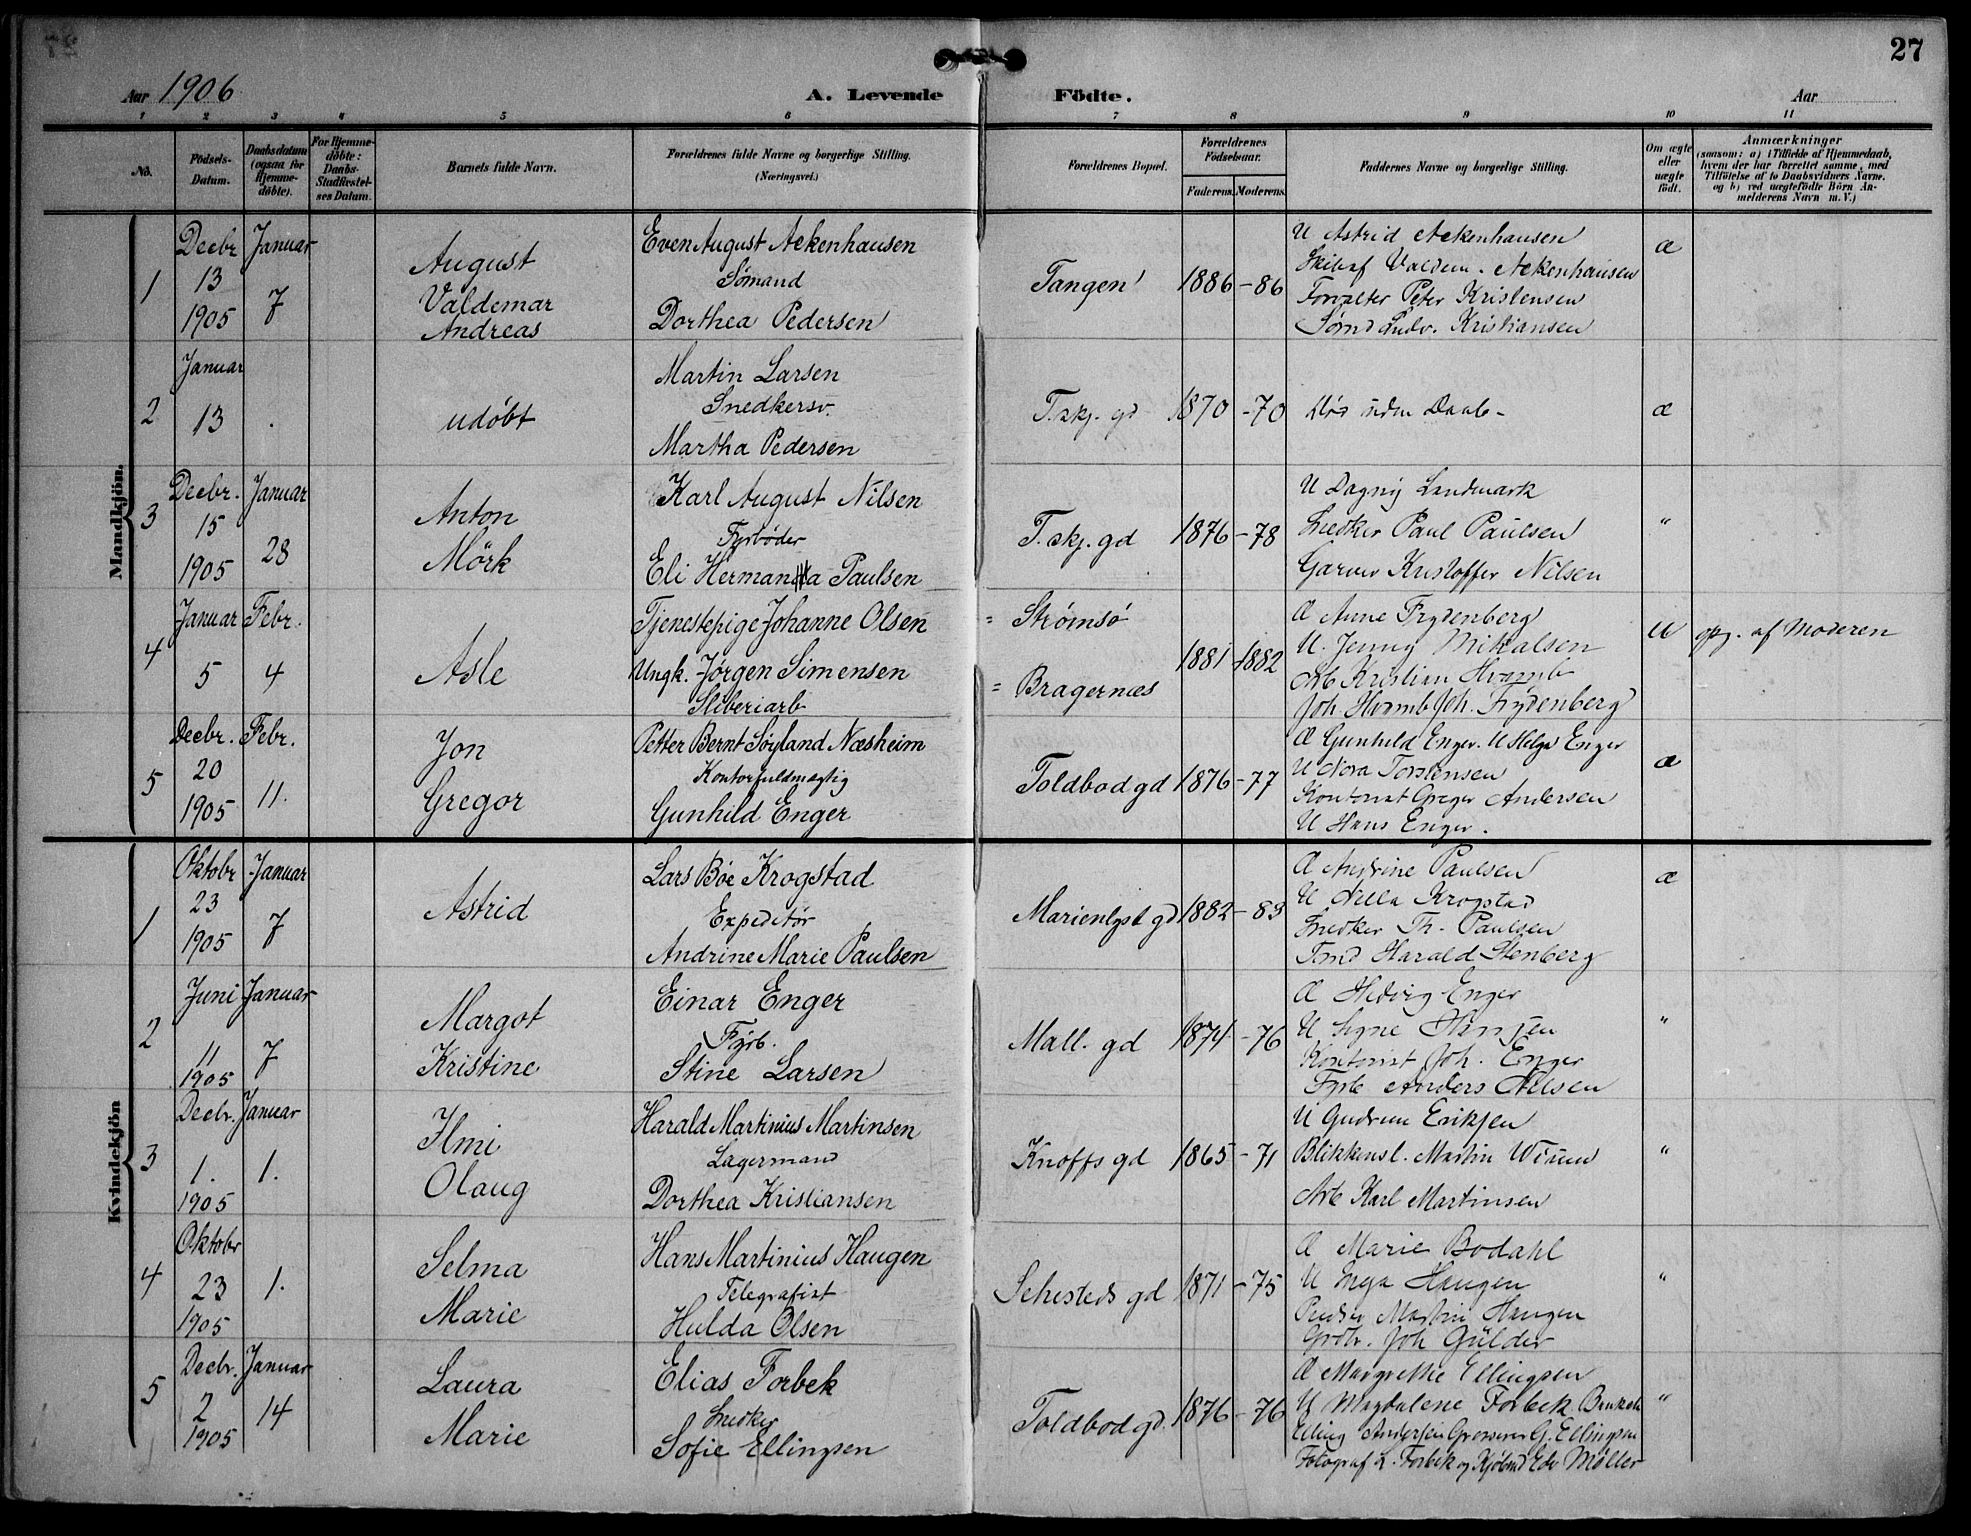 27
Aar 1906
A. Levende Födte.
Aar
1 2 3 4 5 6 7 8 9 10 11
No.
Födsels-Datum.
Daabsdatum (ogsaa for Hjemme-döbte).
For Hjemme-döbte: Daabs-Stadfæstel-ses Datum.
Barnets fulde Navn.
Forældrenes fulde Navne og borgerlige Stilling.
(Næringsvei.)
Forældrenes Bopæl.
Forældrenes Födselsaar.
Faderens. Moderens.
Faddernes Navne og borgerlige Stilling.
Om ægte eller uægte födt.
Anmærkninger
(saasom: a) i Tilfælde af Hjemmedaab,
hvem der har forrettet samme, med
Tilföielse af to Daabsvidners Navne,
og b) ved uægtefödte Börn An-
melderens Navn m. V.)
Mandkjön.
1
Decbr 13 1905
Januar 7
August
Valdemar
Andreas
Even August Ackenhausen
Sømand
Dorthea Pedersen
Tangen
1886 - 86
U Astrid Ackenhausen
Skibsf Valdem. Ackenhausen
Forvalter Peter Kristensen
Sømd Ludv. Kristiansen
æ
2
Januar 13 .
udøbt
Martin Larsen
Snedkersv.
Martha Pedersen
T. skj. gd
1870 - 70
død uden Daab -
æ
3
Decbr. 15 1905
Januar 28
Anton
Mörk
Karl August Nilsen
Fyrbøder
Eli Hermana Paulsen
T. skj. gd
1876 - 78
U Dagny Landmark
Snedker Paul Paulsen
Garver Kristoffer Nilsen
"
4
Januar 5
Febr. 4
Asle
Tjenestepige Johanne Olsen
Ungk. Jørgen Simensen
Sliberiarb
= Strømsø
= Bragernæs
1881 - 1882
Æ Anne Frydenberg
U. Jenny Mikalsen
Arb Kristian Hvamb
Joh. Hvamb Joh. Frydenberg
U
opg. af Moderen
5
Decbr. 20 1905
Febr. 11.
Jon
Gregor
Petter Bernt Søyland Næsheim
Kontorfuldmægtig
Gunhild Enger
Toldbod gd
1876 - 77
Æ Gunhild Enger. U Helga Enger
U Nora Torstensen
Kontorist Greger Andersen
U Hans Enger.
æ
Kvindekjön
1
Oktobr 23 1905
Januar 7
Astrid
Lars Böe Krogstad
Expeditør
Andrine Marie Paulsen
Marienlyst gd
1882 - 83
Æ Andrine Paulsen
U Nella Krogstad
Snedker Th. Paulsen
Tmd Harald Stenberg
æ
2
Juni 11 1905
Januar 7
Margot
Kristine
Einar Enger
Fyrb.
Stine Larsen
Mall. gd
1874 - 76
Æ Hedvig Enger
U Signe Hansen
Kontorist Joh. Enger
Fyrb Anders Nilsen
"
3
Decbr. 1. 1905
Januar 1.
Ilmi
Olaug
Harald Martinius Martinsen
Lagermand
Dorthea Kristiansen
Knoffs gd
1865 - 71
U Gudrun Eriksen
Blikkensl. Martin Wium
Arb Karl Martinsen
"
4
Oktobr 23 1905
1.
Selma
Marie
Hans Martinius Haugen
Telegrafist
Hulda Olsen
Sehesteds gd
1871 - 75
Æ Marie Bodahl
U Inga Haugen
Martin Haugen
Grosr. Joh Gülder
"
5
Decbr. 2 1905
Januar 14
Laura
Marie
Elias Forbek
Snedker
Sofie Ellingsen
Toldbod gd.
1876 - 76
Æ Margrethe Ellingsen
U Magdalene Forbek
Elling Andersen Grosserer G. Ellingsen
Fotograf L. Forbek og Kjøbmd Edv Møller
"